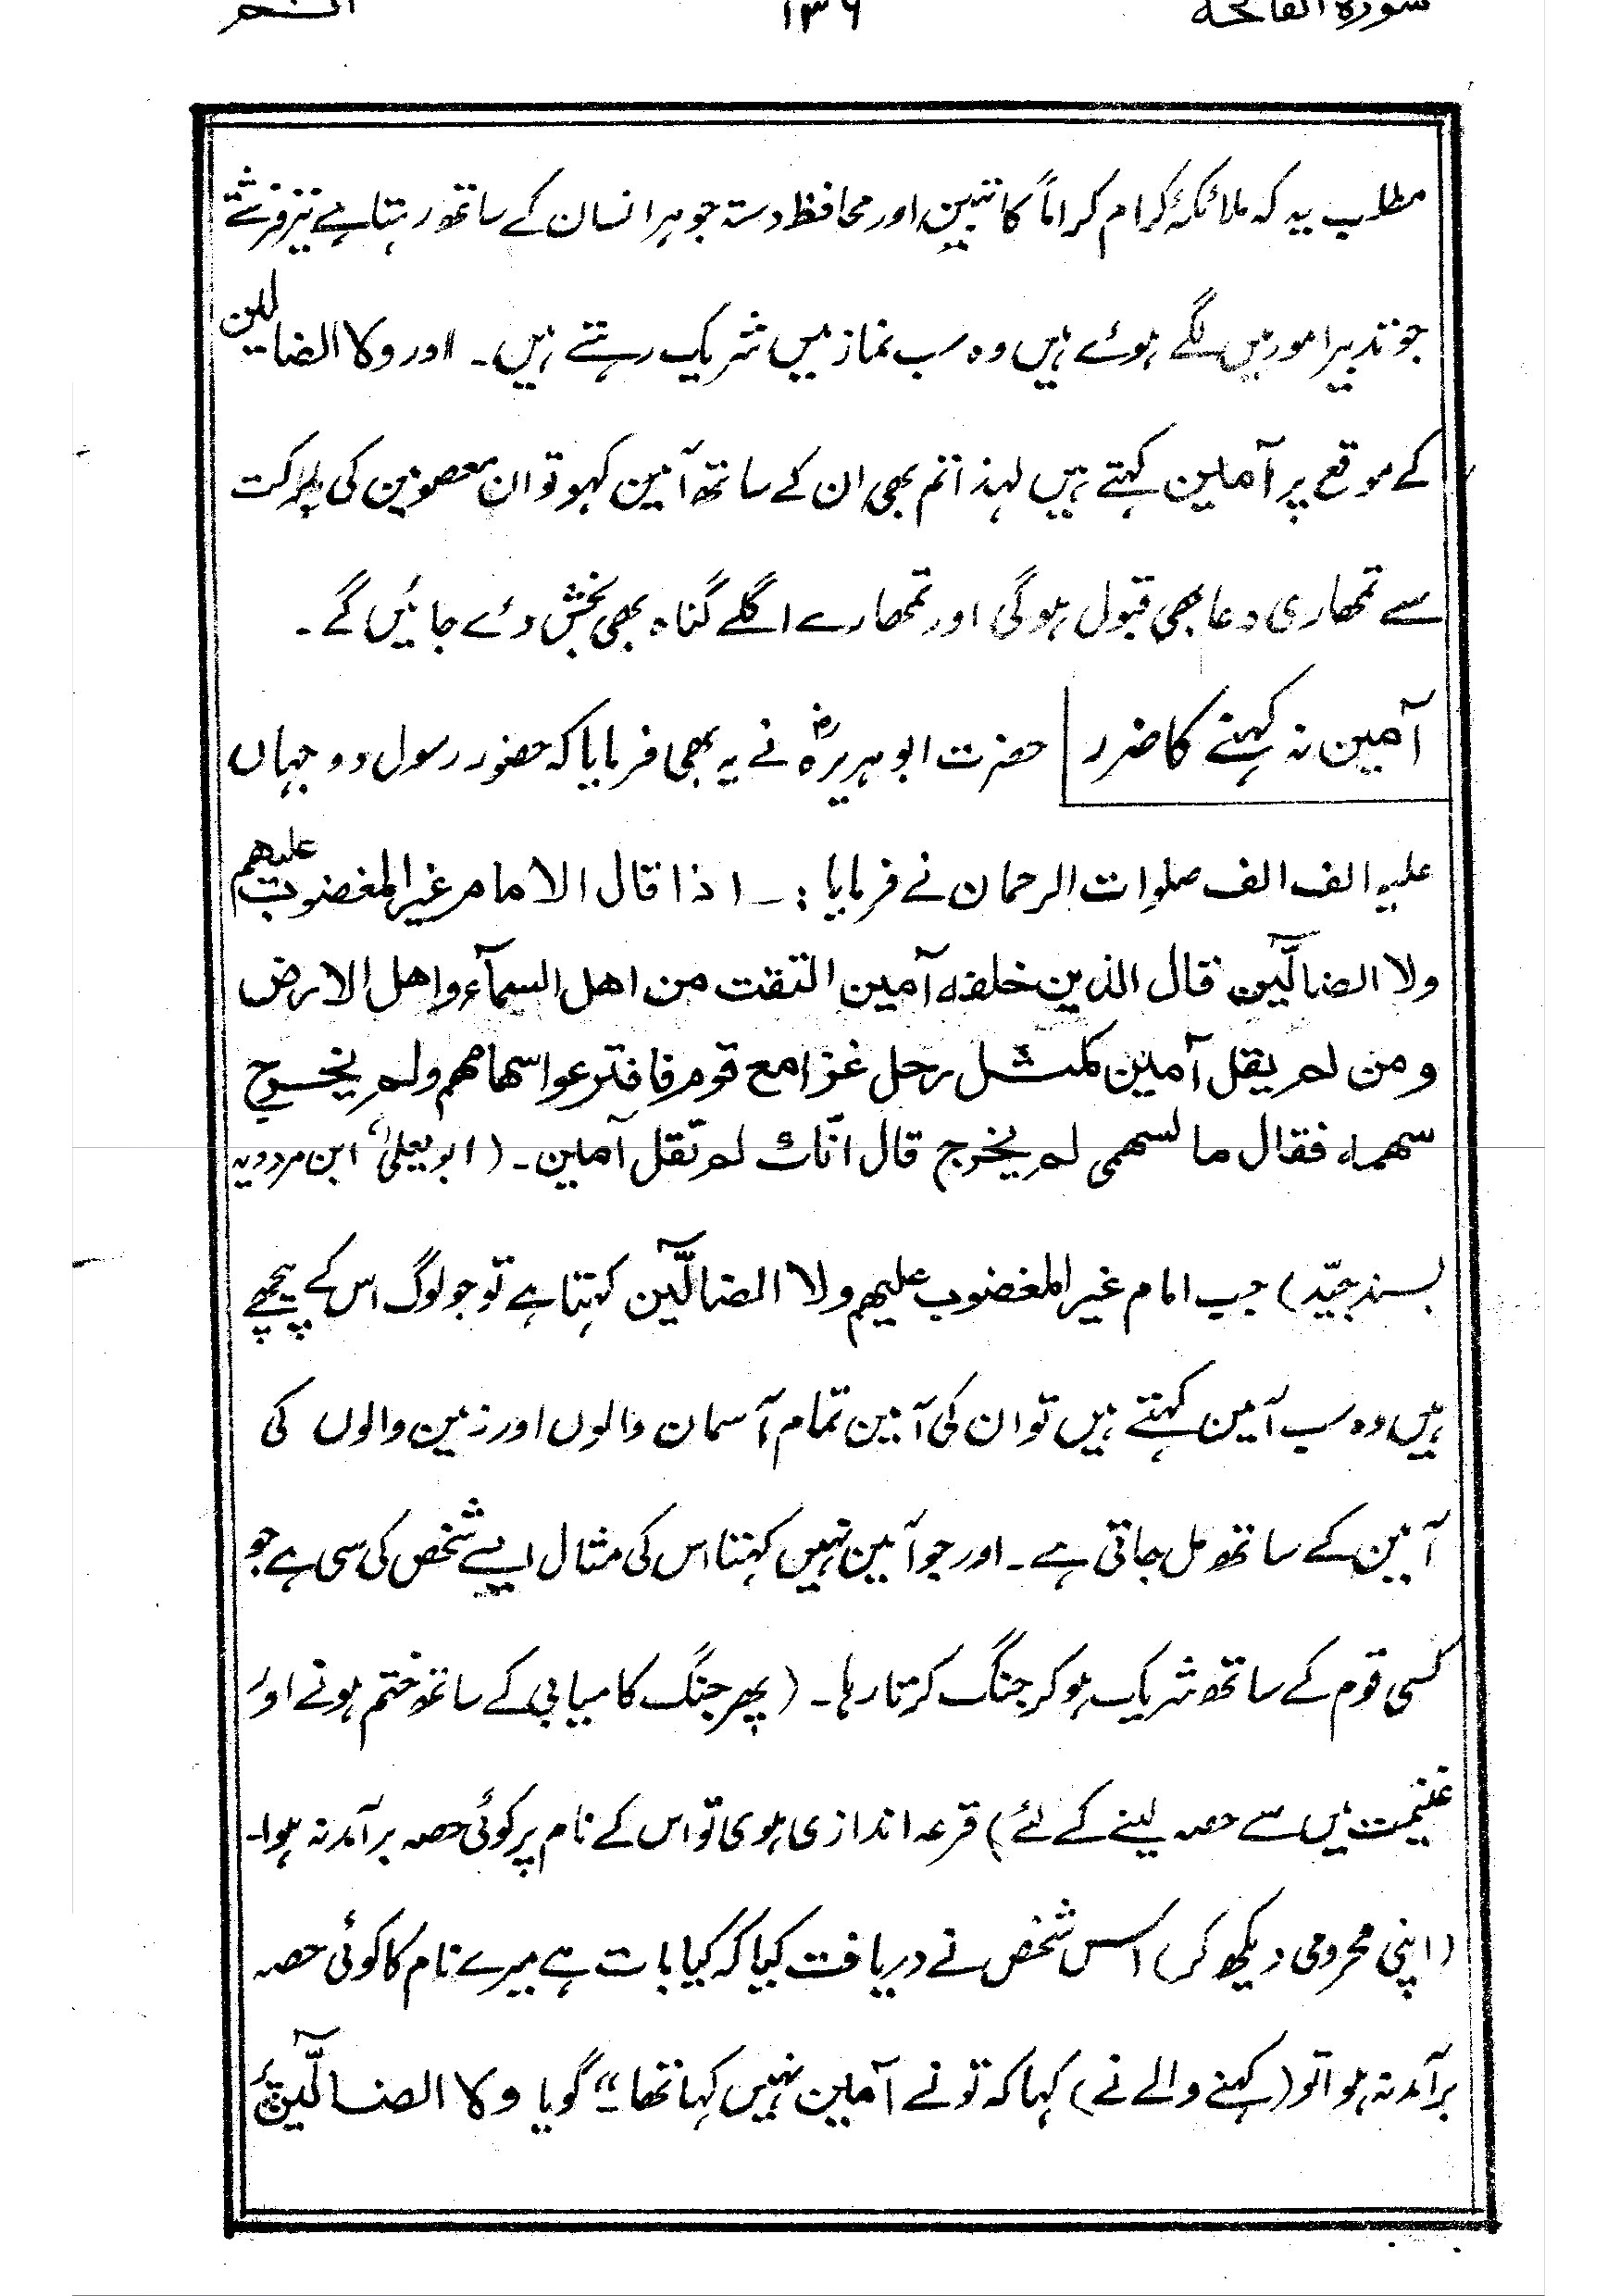 سورة الفاتحہ ۱۳۶
مطلب یہ کہ ملائکۂ کرام کراماً کاتبین اور محافظ دستہ جو ہر انسان کے ساتھ رہتا ہے نیز فرشتے
جو تدبیر امور میں لگے ہوئے ہیں وہ سب نماز میں شریک رہتے ہیں ۔ اور ولا الضالین
کے موقع پر آملین کہتے ہیں لہذا تم بھی ان کے ساتھ آمین کہو تو ان معصومین کی برکت
سے تمھاری دعا بھی قبول ہوگی اور تمھارے اگلے گناہ بھی بخش دئے جائیں گے ۔
آمین نہ کہنے کا ضرر حضرت ابو ہریرہؓ نے یہ بھی فرمایا کہ حضور رسول دوجہاں
علیہ الف الف صلوات الرحمان نے فرمایا :۔ اذا قال الامام غیر المغضوب علیھم
ولا الضالّین قال الذین خلفہ آمین التقت من اھل السمآء واھل الارض
ومن لم یقل آمین کمثل رجل غزا مع قوم فاقترعوا سھامھم ولم یخرج
سھمہ فقال ما لسھمی لم یخرج قال انّک لم تقل آملین ۔ (ابو یعلیٰ، ابن مردویہ
بسند جیّد) جب امام غیر المغضوب علیھم ولا الضالّین کہتا ہے تو جو لوگ اس کے پیچھے
ہیں وہ سب آمین کہتے ہیں تو ان کی آمین تمام آسمان والوں اور زمین والوں کی
آمین کے ساتھ مل جاتی ہے ۔ اور جو آمین نہیں کہتا اس کی مثال ایسے شخص کی سی ہے جو
کسی قوم کے ساتھ شریک ہو کر جنگ کرتا رہا ۔ (پھر جنگ کامیابی کے ساتھ ختم ہونے اور
غنیمت میں سے حصہ لینے کے لئے) قرعہ اندازی ہوی تو اس کے نام پر کوئی حصہ برآمد نہ ہوا۔
(اپنی محرومی دیکھ کر) اس شخص نے دریافت کیا کہ کیا بات ہے میرے نام کا کوئی حصہ
برآمد نہ ہوا تو (کہنے والے نے) کہا کہ تو نے آملین نہیں کہا تھا“ گویا ولا الضالّین